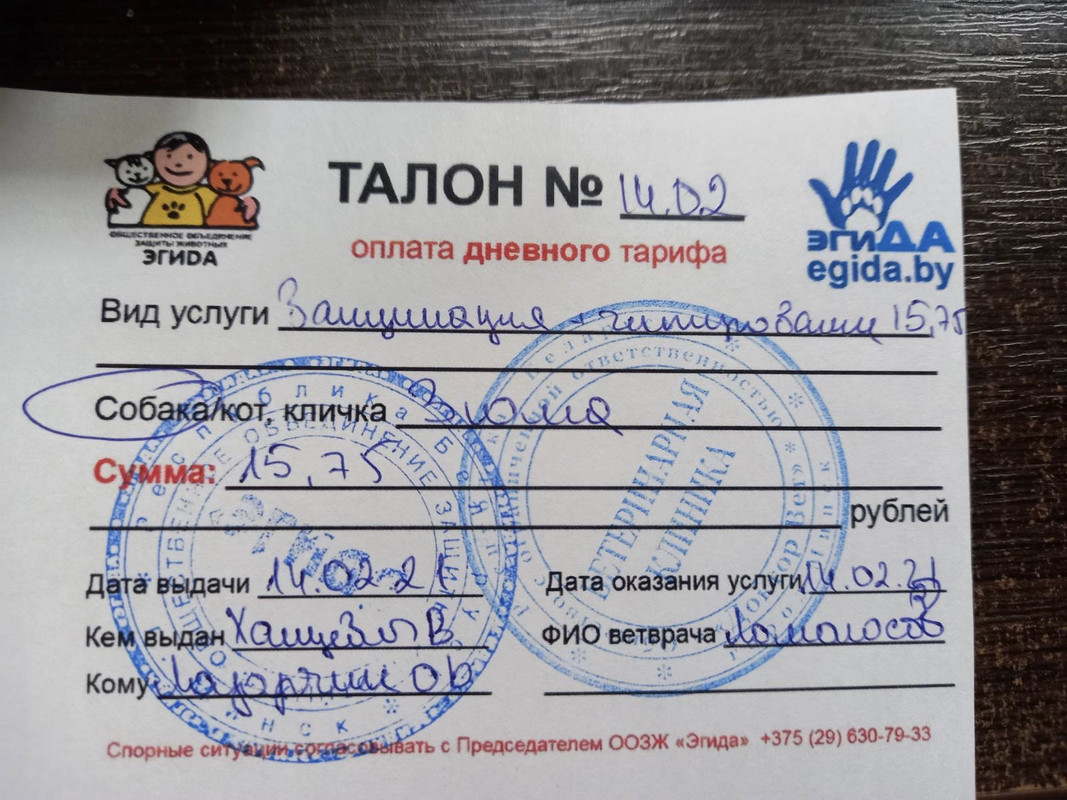 ОБЩЕСТВЕННОЕ ОБЪЕДИНЕНИЕ
ЗАЩИТЫ ЖИВОТНЫХ
ЭГИDА
ТАЛОН № 14.02
оплата дневного тарифа
эгиДА
egida.by
Вид услуги Вакцинация + чипирование 15,75
Собака/кот, кличка
Сумма: 15,75
рублей
Дата выдачи 14.02.21
Дата оказания услуги 14.02.21
Кем выдан
ФИО ветврача Ломоносов
Кому
Спорные ситуации согласовывать с Председателем ООЗЖ «Эгида» +375 (29) 630-79-33
Республика Беларусь
ОБЩЕСТВЕННОЕ ОБЪЕДИНЕНИЕ ЗАЩИТЫ
ВЕТЕРИНАРНАЯ
КЛИНИКА
ответственностью